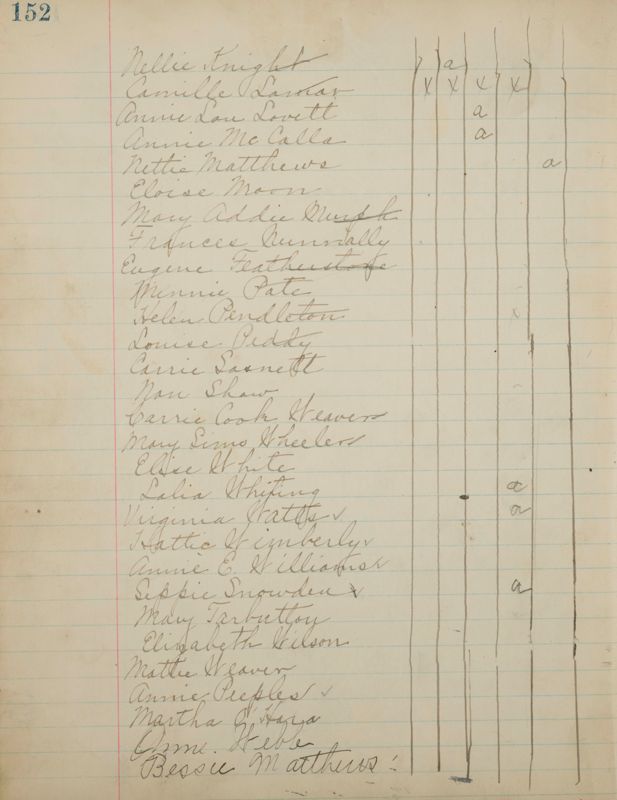 152
Nellie Knight a
Camille Lamar x x x x
Annie Lou Lovett a
Annie McCalla a
Nettie Matthews a
Eloise Moon
Mary Addie Murph
Frances Nunnally
Eugene Featherstone
Minnie Pate
Helen Pendleton x
Louise Peddy
Carrie Sasnett
Nan Shaw
Carrie Cook Weaver
Mary Sims Wheeler
Elise White
Lalia Whiting a
Virginia Watts ✓ a
Hattie Wimberly ✓
Annie E. Williams ✓
Seppie Snowden x a
Mary Tarbutton
Elizabeth Wilson
Mattie Weaver
Annie Peeples ✓
Martha O'Hara
Webb
Bessie Matthews